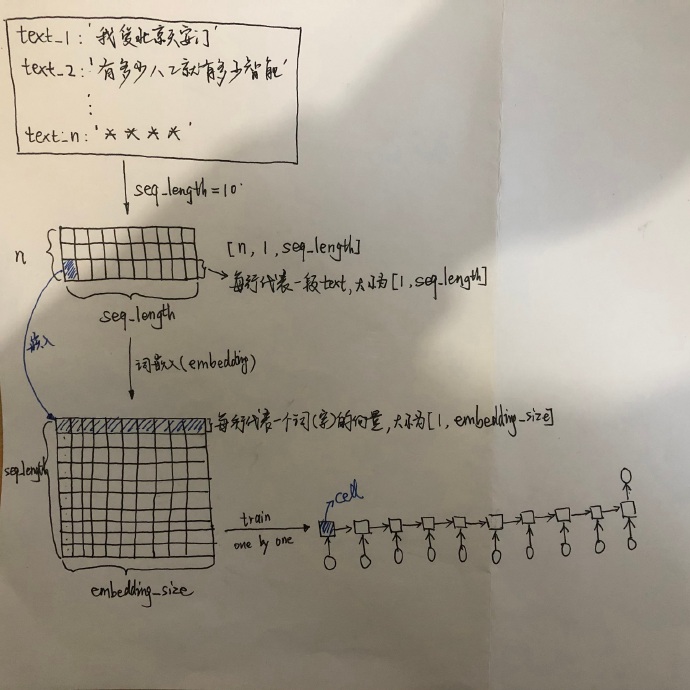 text_1: '我爱北京天安门'
text_2: '有多少人工就有多少智能'
⋮
text_n: '* * * *'
seq_length=10
n
[n, 1, seq_length]
每行代表一段text, 大小为[1, seq_length]
seq_length
嵌入
词嵌入(embedding)
每行代表一个词(字)的向量, 大小为[1, embedding_size]
seq_length
cell
train
one by one
embedding_size